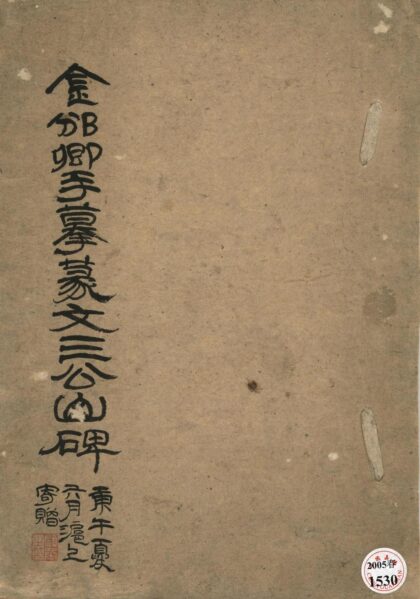 金邠卿手摹篆文三公山碑
庚午夏
六月滬上
寄贈
2005春
1530